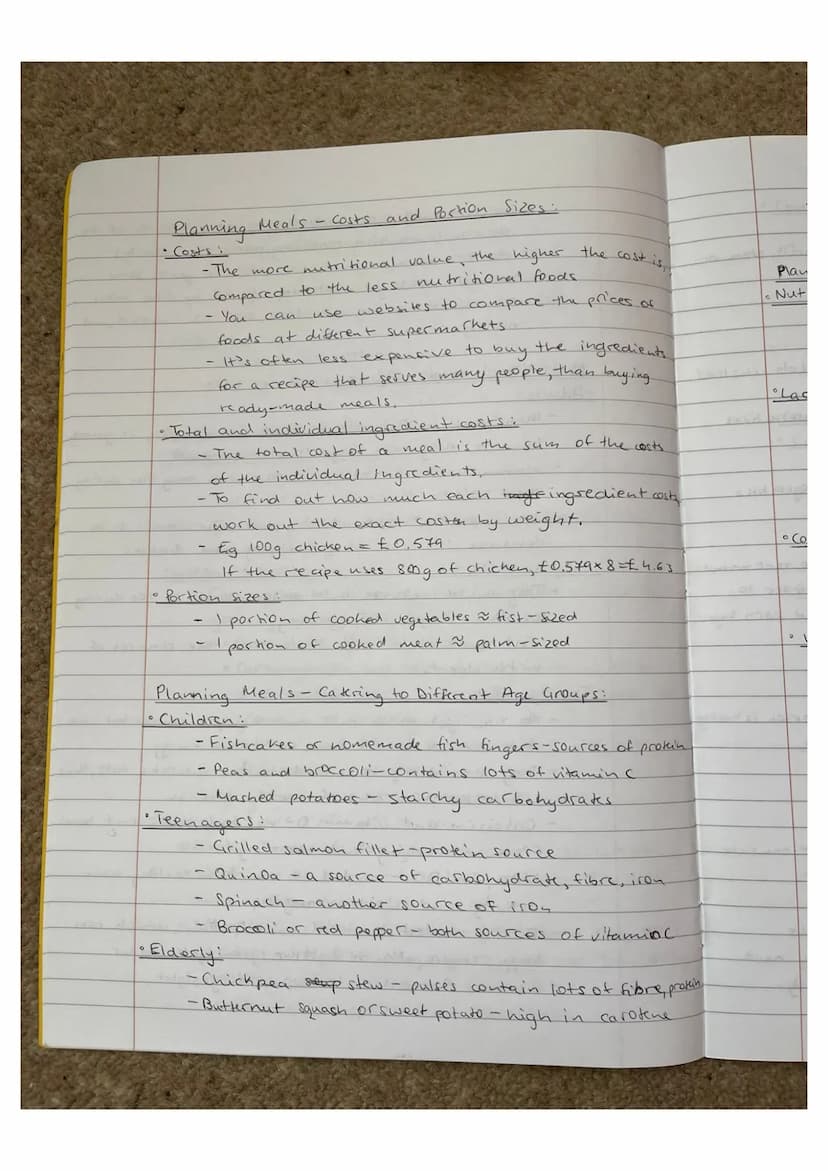 Planning Meals - Costs and Portion Sizes:
• Costs:
- The more nutritional value, the higher the cost is,
compared to the less nutritional foods
- You can use websites to compare the prices of
foods at different supermarkets
- It's often less expensive to buy the ingredients
for a recipe that serves many people, than buying
ready-made meals.
• Total and individual ingredient costs:
- The total cost of a meal is the sum of the costs
of the individual ingredients.
- To find out how much each ingredient costs,
work out the exact cost by weight.
- Eg 100g chicken = £0.579
If the recipe uses 800g of chicken, £0.579 x 8 = £4.63
• Portion sizes:
- 1 portion of cooked vegetables ≈ fist-sized
- 1 portion of cooked meat ≈ palm-sized
Planning Meals - Catering to Different Age Groups:
• Children:
- Fishcakes or homemade fish fingers - sources of protein
- Peas and broccoli - contains lots of vitamin C
- Mashed potatoes - starchy carbohydrates
• Teenagers:
- Grilled salmon fillet - protein source
- Quinoa - a source of carbohydrate, fibre, iron
- Spinach - another source of iron
- Broccoli or red pepper - both sources of vitamin C
• Elderly:
- Chickpea soup stew - pulses contain lots of fibre, protein
- Butternut squash or sweet potato - high in carotene
Plan
• Nut
• Lac
• Co